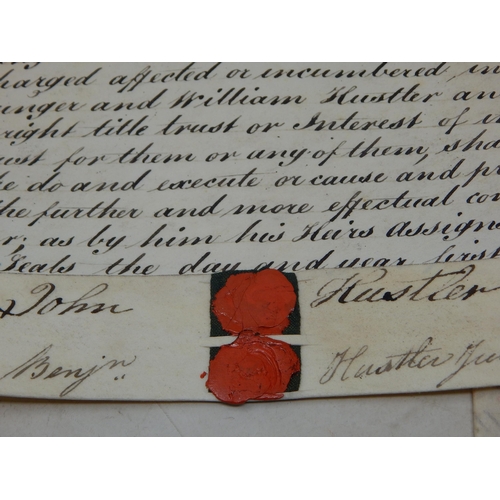 charged affected or incumbered in
unger and William Hustler an
right title trust or Interest of in
ust for them or any of them, sha
do and execute or cause and pr
the further and more effectual con
r, as by him his Heirs Assigns
Seals the day and year first
John Hustler
Benjn Hustler Jun